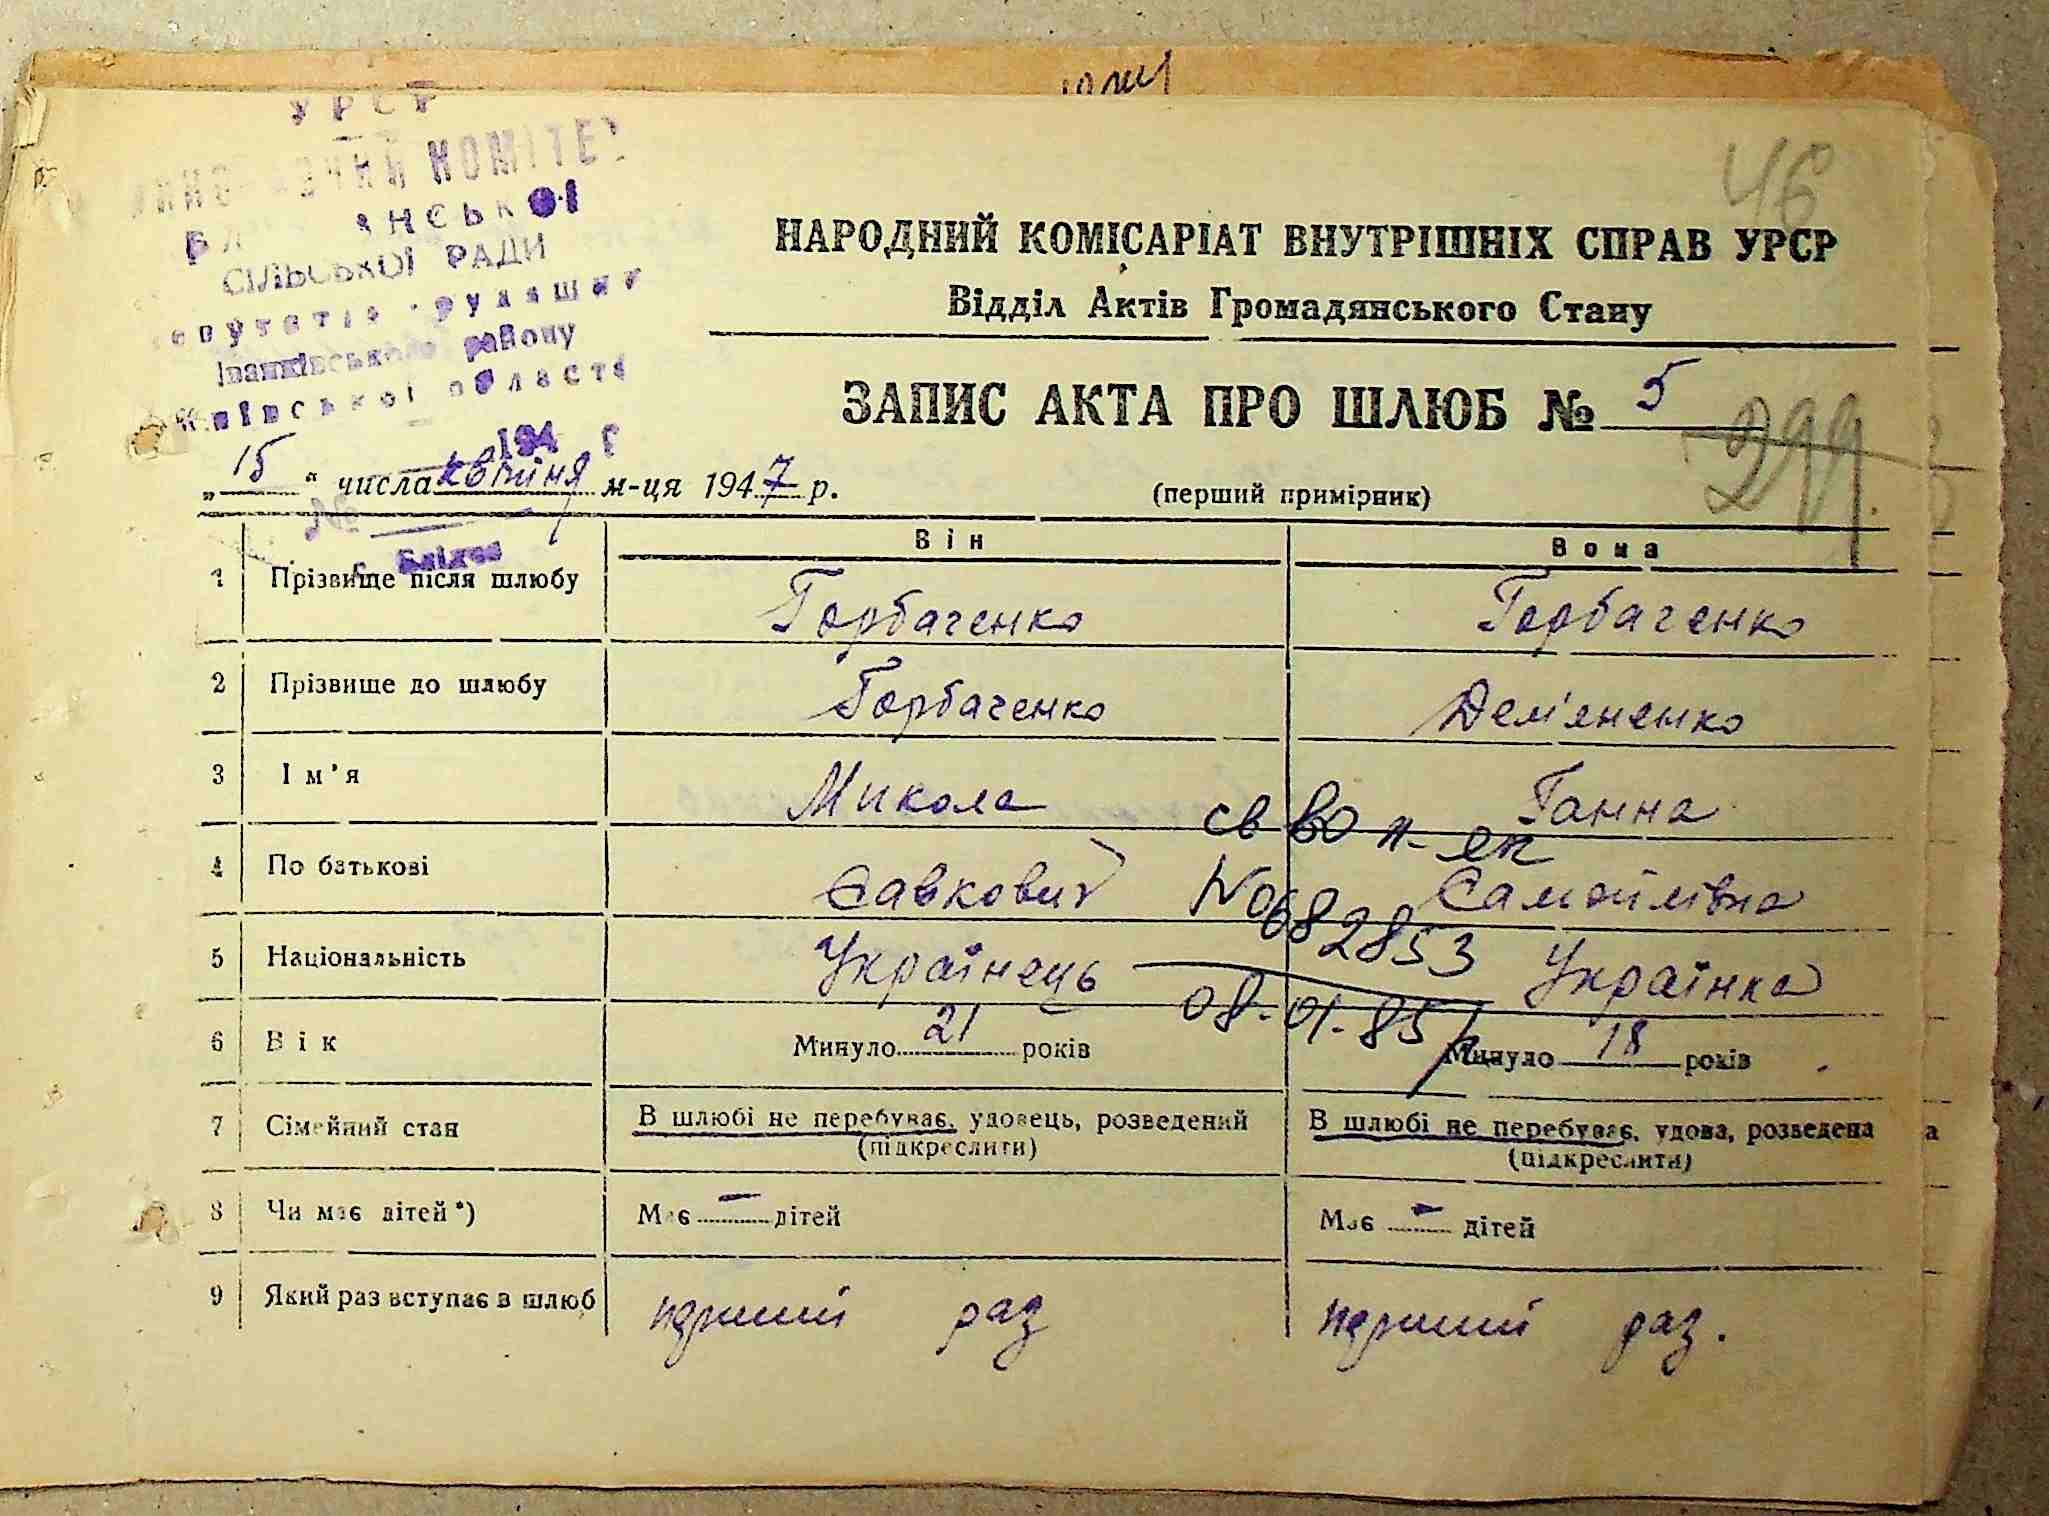 УРСР
КОМІТЕТ
СІЛЬСЬКОЇ РАДИ
Іванківського району
Київської області
194 р
46
НАРОДНИЙ КОМІСАРІАТ ВНУТРІШНІХ СПРАВ УРСР
Відділ Актів Громадянського Стану
ЗАПИС АКТА ПРО ШЛЮБ № 5
299
„15“ числа квітня м-ця 1947 р.
(перший примірник)
№
Він Вона
1 Прізвище після шлюбу Горбаченко Горбаченко
2 Прізвище до шлюбу Горбаченко Дем'яненко
3 Ім'я Микола Ганна
св во
4 По батькові Савкович Самойлівна
№ 682853
5 Національність Українець Українка
08.01.85
6 Вік Минуло 21 років Минуло 18 років
7 Сімейний стан В шлюбі не перебуває, удовець, розведений В шлюбі не перебуває, удова, розведена
(підкреслити) (підкреслити)
8 Чи має дітей*) Має – дітей Має – дітей
9 Який раз вступає в шлюб перший раз перший раз.